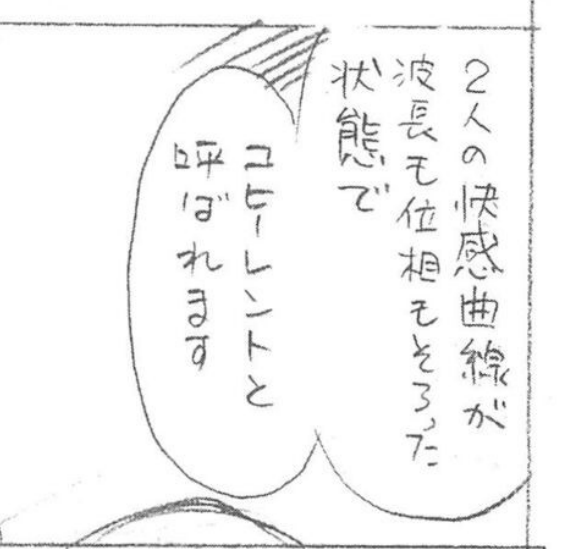 2人の快感曲線が
波長も位相もそろった
状態で
コヒーレントと
呼ばれます